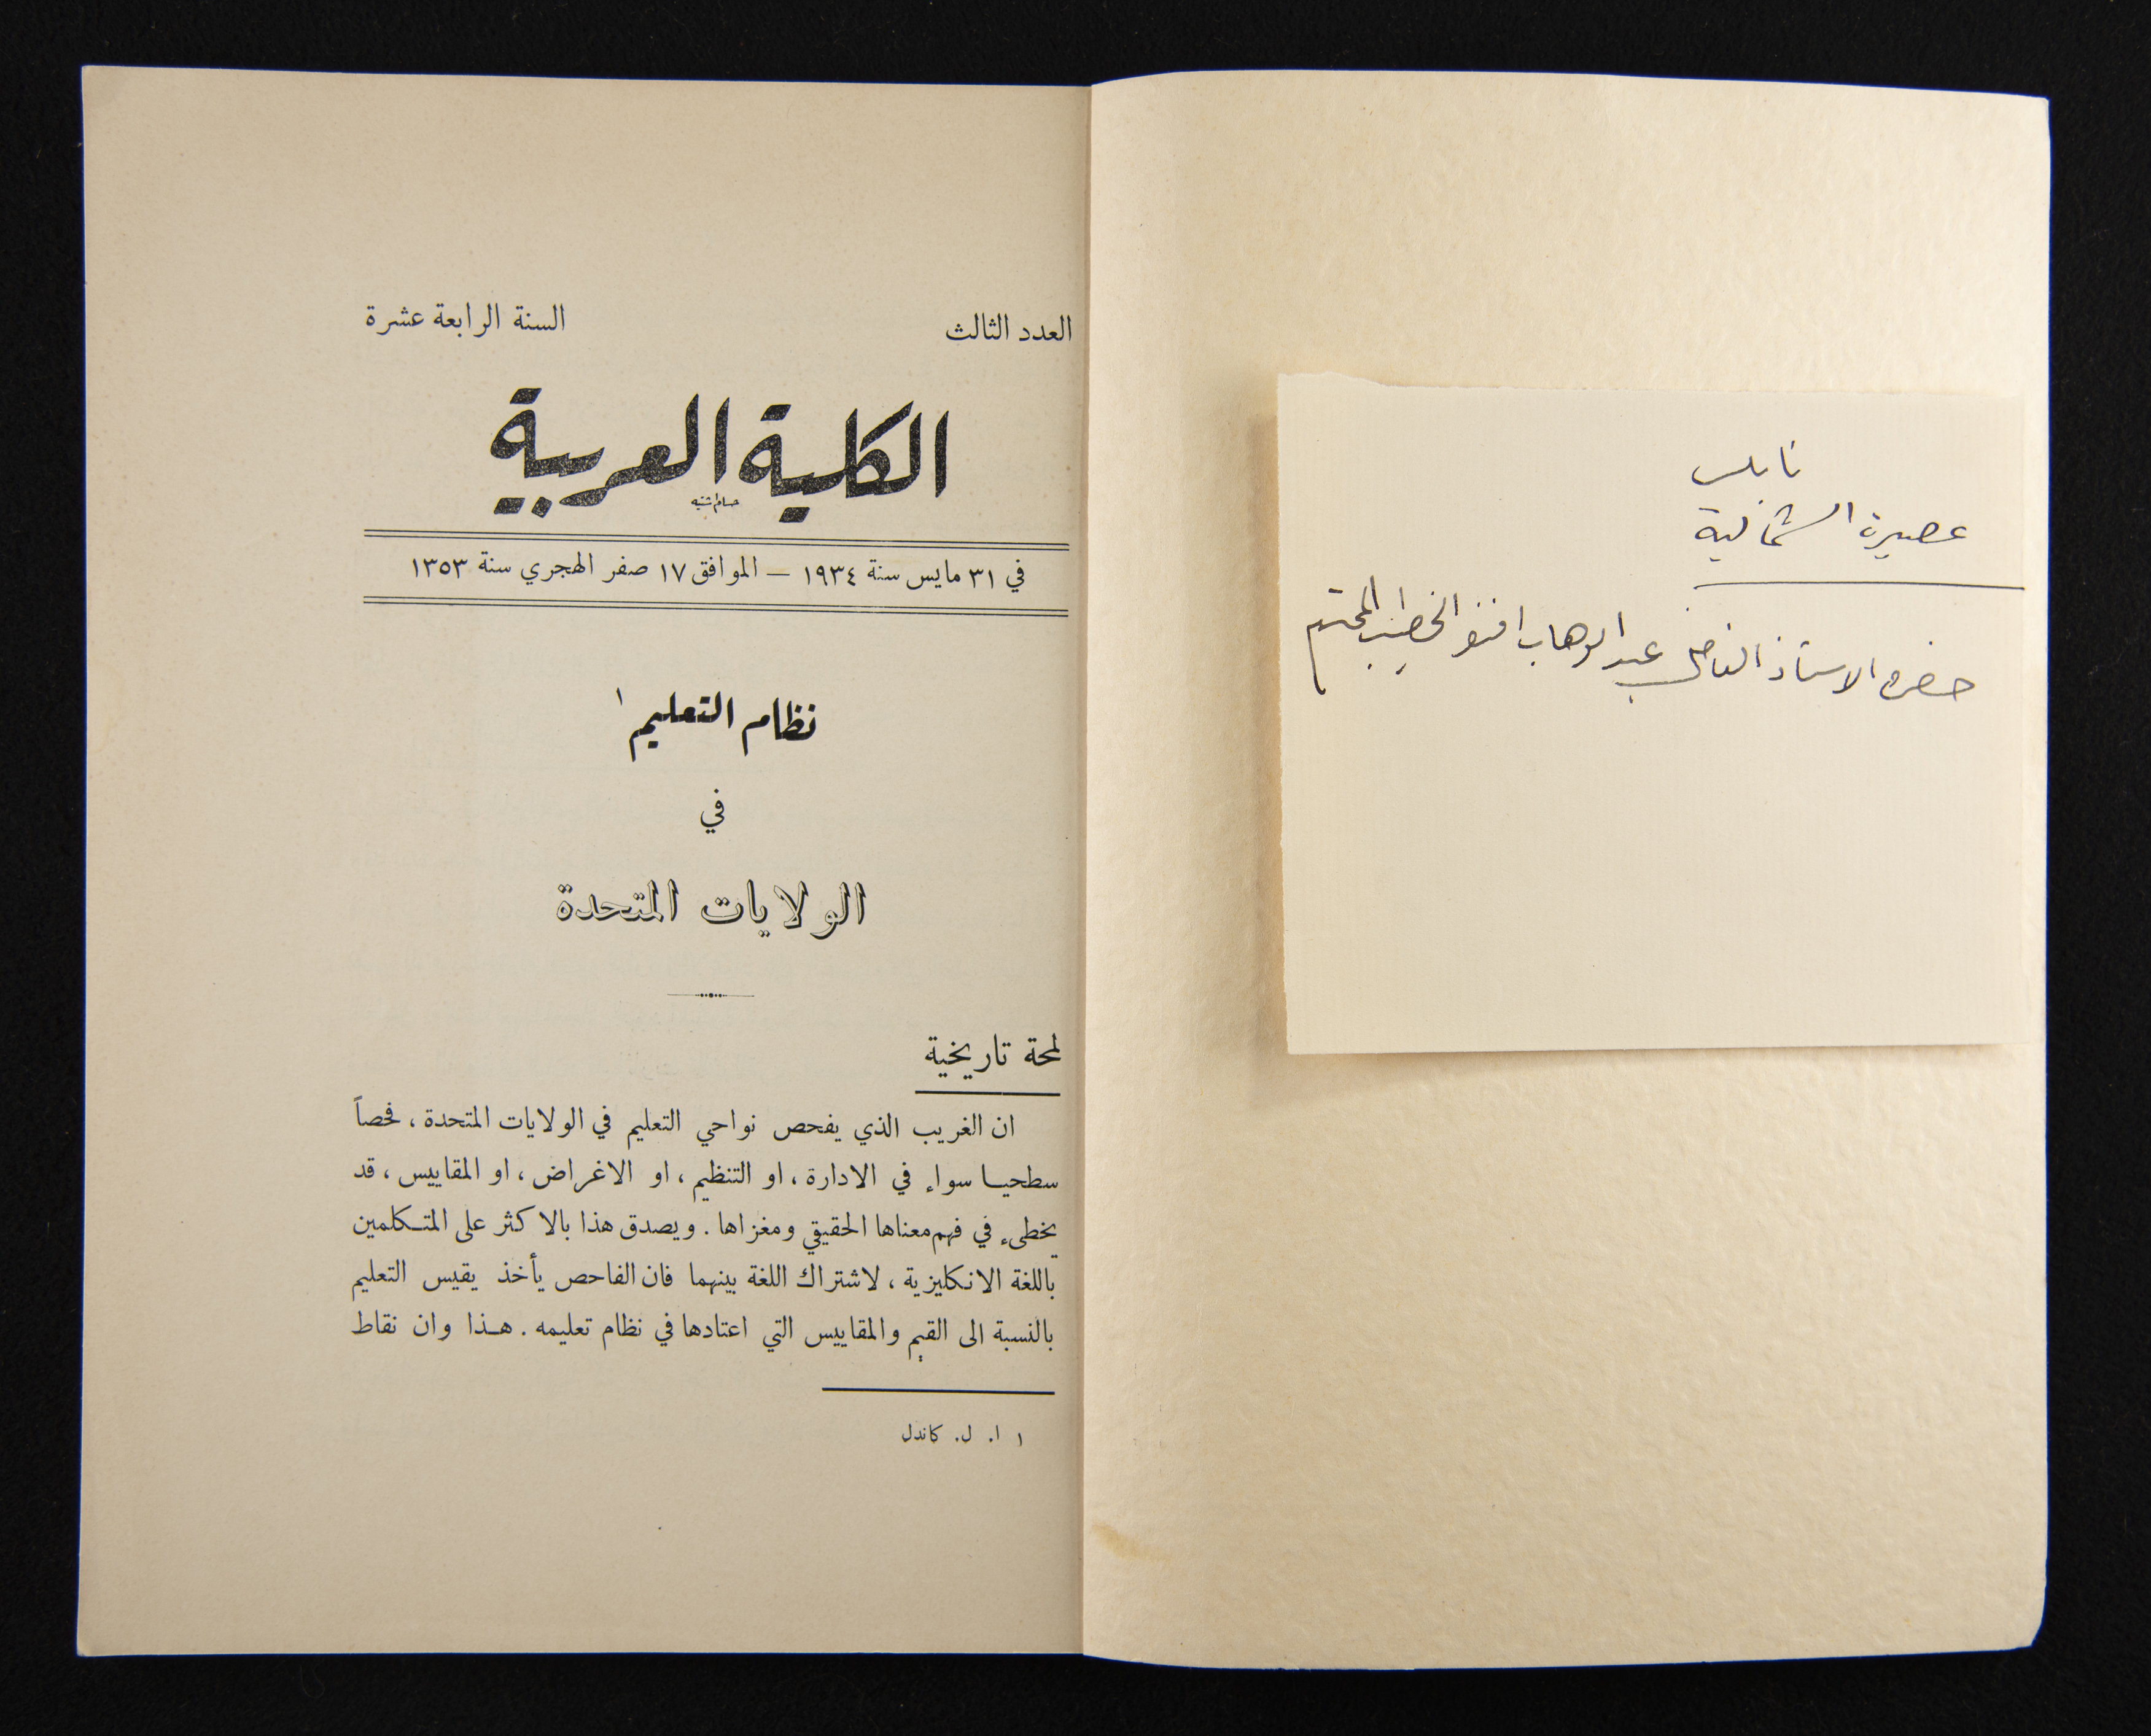 نابلس
عصيرة الشمالية
حضرة الاستاذ الفاضل عبد الوهاب افندي الخطيب المحترم
العدد الثالث
السنة الرابعة عشرة
الكلية العربية
في ٣١ مايس سنة ١٩٣٤ – الموافق ١٧ صفر الهجري سنة ١٣٥٣
نظام التعليم ١
في
الولايات المتحدة
لمحة تاريخية
ان الغريب الذي يفحص نواحي التعليم في الولايات المتحدة ، فحصاً
سطحيا سواء في الادارة ، او التنظيم ، او الاغراض ، او المقاييس ، قد
يخطىء في فهم معناها الحقيقي ومغزاها . ويصدق هذا بالاكثر على المتكلمين
باللغة الانكليزية ، لاشتراك اللغة بينهما فان الفاحص يأخذ يقيس التعليم
بالنسبة الى القيم والمقاييس التي اعتادها في نظام تعليمه . هذا وان نقاط
١ ا. ل. كاندل